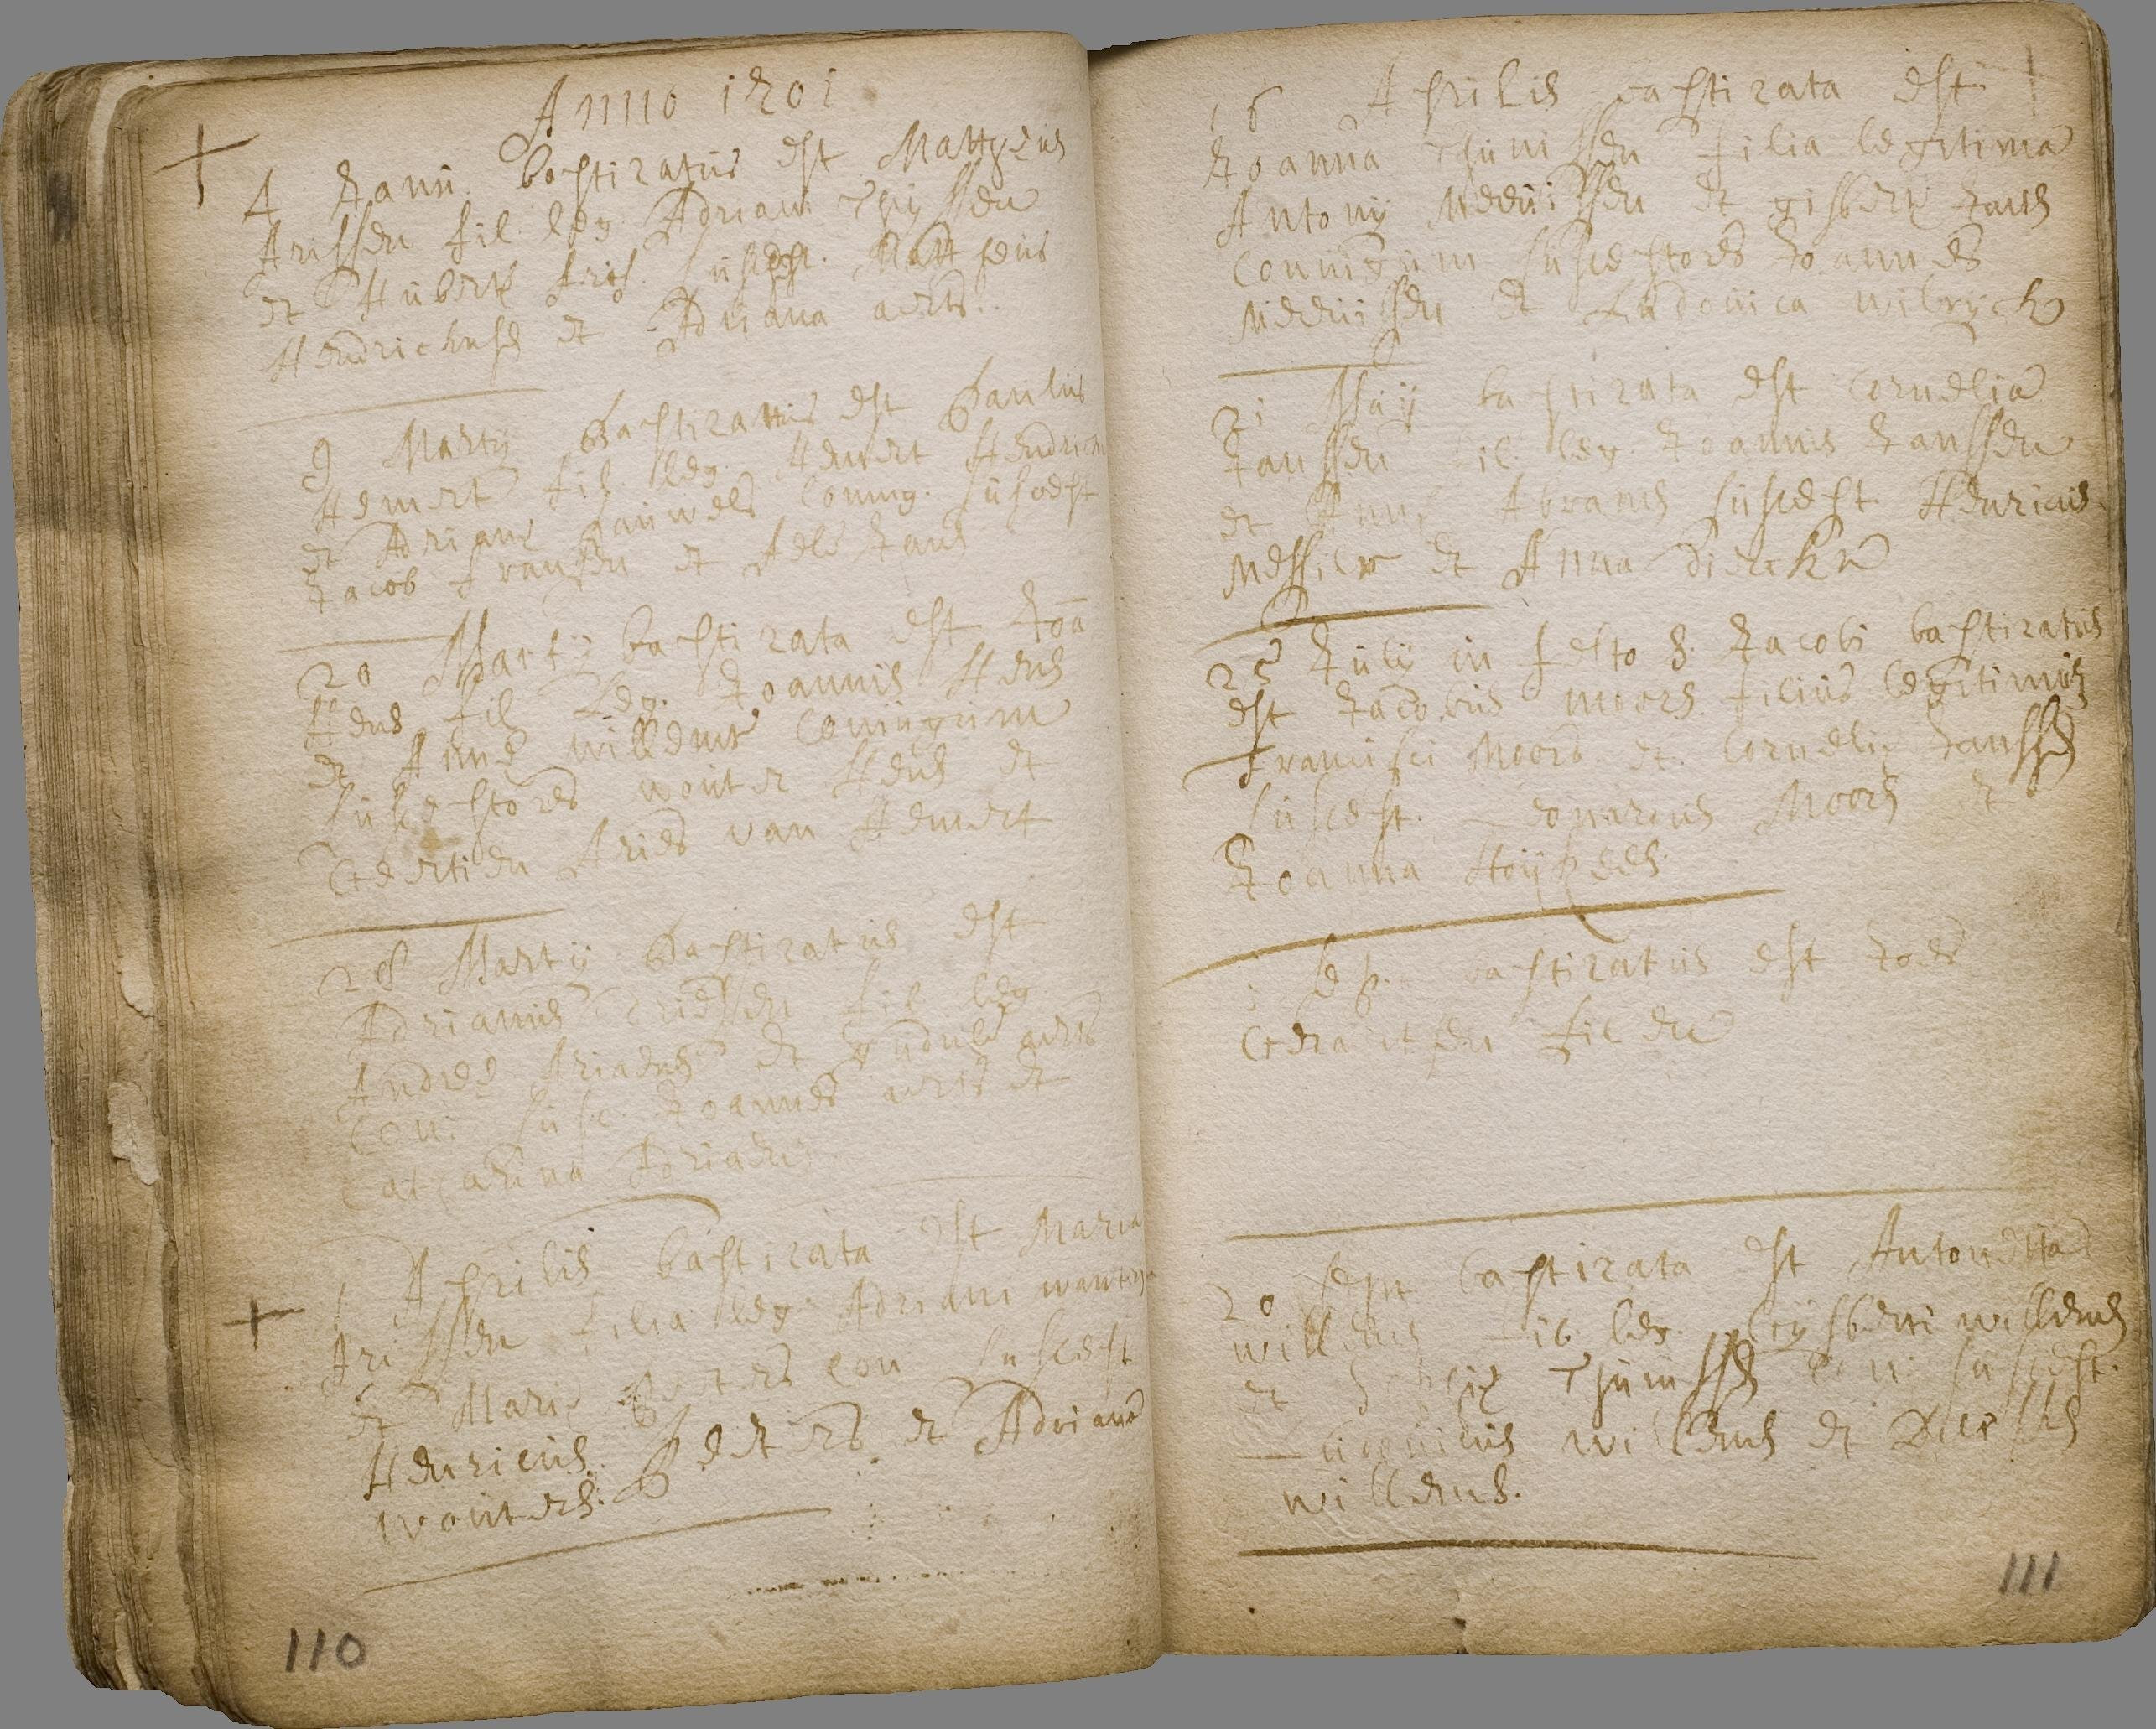 Anno 1701
4 Janu. baptizatus est Mattheus
Arissen fil. leg. Adriani Thyssen
et Hubertę Aris. suscept. Mattheus
Hendrickse et Adriana aerts.
9 Martij Baptizatus est Paulus
Hemert fil. leg. Hemert Hendrick
et Adrianę Pauwels Coniug. suscept
Jacob Fransen et Jans
20 Martij baptizata est Joā
Hens fil leg. Joannis Hens
et Annę willems Coniugum
susceptores wouter Hens et
Geertien Aries van Hemert
28 Martij Baptizatus est
Adrianus Driessen fil leg
Andreę Ariaens et gudulę aerts
Con. susc. Joannes aerts et
Catharina Adriaens
1 Aprilis baptizata est Maria
Arissen filia leg. Adriani
et Marię Peeters con suscept
Henricus Peeters et Adriana
Wouters.
110
16 Aprilis baptizata est
Joanna Thunissen filia legitima
Antonij Meeuissen et gisbertę Jans
Coniugum susceptores Joannes
Meeuissen et Ludovica wilryck
21 baptizata est Cornelia
Janssen fil. leg. Joannis Janssen
et Annę Abrams suscept Henricus
et Anna Dierckx
25 July in festo S. Jacobi baptizatus
est Jacobus Moors filius legitimus
Francisci Moors et Cornelię Jansse
suscept. Leonardus Moors et
Joanna
1 Sep. baptizatus est Joes
Geraertsen fil en
20 Sept baptizata est Antonetta
willems fil leg. Gysberti willems
et Thunisse con. suscept.
willems et
willems.
111